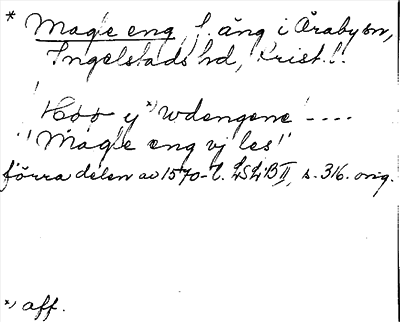 * Magle eng, f. äng i Öraby sn,
Ingelstads hd, Krist. l.
Hoo y *) wdengene ----
"Magle eng vj les"
förra delen av 1570-t. LSLB II, s. 316. orig.
*) aff.